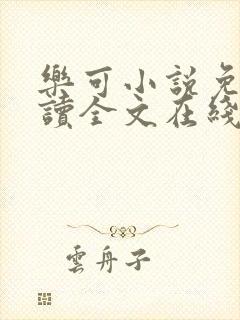 樂可小說免
讀全文在綫
雲舟子